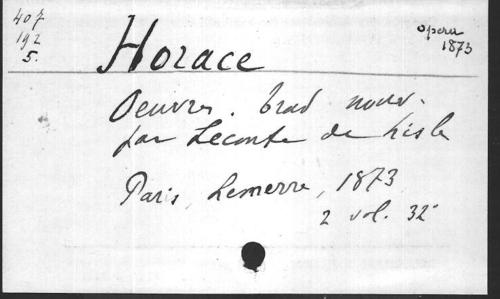 407
192
5.
Horace
opera
1873
Oeuvres. trad nouv.
par Leconte de Lisle
Paris, Lemerre, 1873
2 vol. 32°